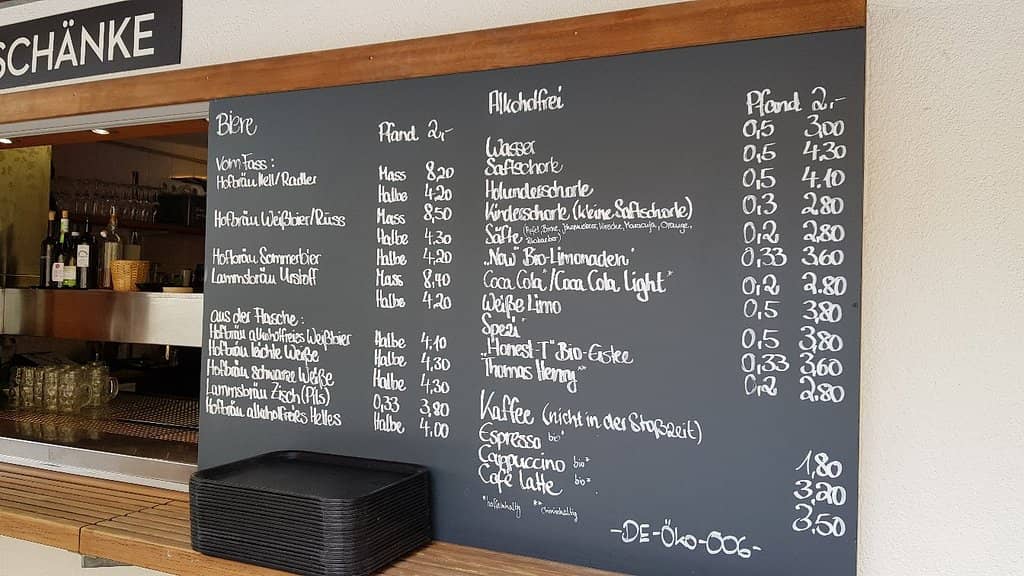 SCHÄNKE
Biere Pfand 2,-
Vom Fass:
Hofbräu Hell/Radler Mass 8,20
Halbe 4,20
Hofbräu Weißbier/Russ Mass 8,50
Halbe 4,30
Hofbräu Sommerbier Halbe 4,20
Lammsbräu Urstoff Mass 8,40
Halbe 4,20
aus der Flasche:
Hofbräu alkoholfreies Weißbier Halbe 4,10
Hofbräu leichte Weiße Halbe 4,30
Hofbräu schwarze Weiße Halbe 4,30
Lammsbräu Zisch (Pils) 0,33 3,80
Hofbräu alkoholfreies Helles Halbe 4,00
Alkoholfrei Pfand 2,-
Wasser 0,5 3,00
Saftschorle 0,5 4,30
Holunderschorle 0,5 4,10
Kinderschorle (kleine Saftschorle) 0,3 2,80
Säfte (Apfel, Birne, Johannisbeer, Kirsche, Maracuja, Orange, Rhabarber) 0,2 2,80
"Now" Bio-Limonaden 0,33 3,60
"Coca Cola"/Coca Cola Light"* 0,2 2,80
Weiße Limo 0,5 3,80
Spezi* 0,5 3,80
"Honest-T" Bio-Eistee 0,33 3,60
"Thomas Henry"** 0,2 2,80
Kaffee (nicht in der Stoßzeit)
Espresso bio* 1,80
Cappuccino bio* 3,20
Café Latte bio* 3,50
*koffeinhaltig **chininhaltig
-DE-ÖKO-006-